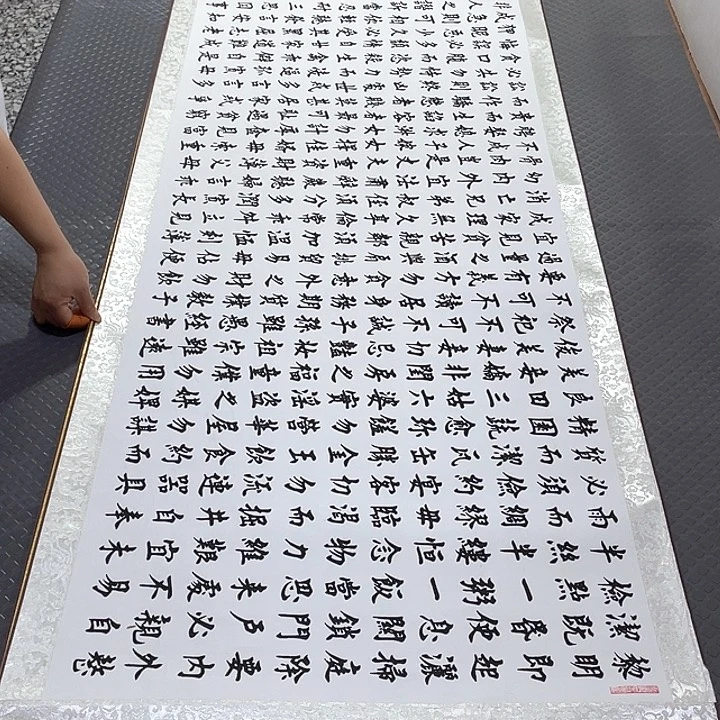 黎明即起灑掃庭除要內外整
潔既昏便息關鎖門戶必親自
檢點一粥一飯當思來處不易
半絲半縷恒念物力維艱宜未
雨而綢繆毋臨渴而掘井自奉
必須儉約宴客切勿流連器具
質而潔瓦缶勝金玉飲食約而
精園蔬愈珍饈勿營華屋勿謀
良田三姑六婆實淫盜之媒婢
美妾嬌非閨房之福童僕勿用
俊美妻妾切忌豔妝祖宗雖遠
祭祀不可不誠子孫雖愚經書
不可不讀居身務期質樸教子
要有義方勿貪意外之財勿飲
過量之酒與肩挑貿易毋佔便
宜見貧苦親鄰須加溫恤刻薄
成家理無久享倫常乖舛立見
消亡兄弟叔侄須分多潤寡長
勿內外宜法肅辭嚴聽婦言乖
骨肉豈是丈夫重資財薄父母
不成人子嫁女擇佳婿毋索重
聘娶媳求淑女勿計厚奩見富
貴而生諂容者最可恥遇貧窮
而作驕態者賤莫甚居家戒爭
訟訟則終凶處世戒多言言多
必失勿恃勢力而凌逼孤寡毋
貪口腹而恣殺生禽乖僻自是
悔誤必多頹惰自甘家道難成
狎昵惡少久必受其累屈志老
成急則可相依輕聽發言安知
非人之譖訴當忍耐三思因事